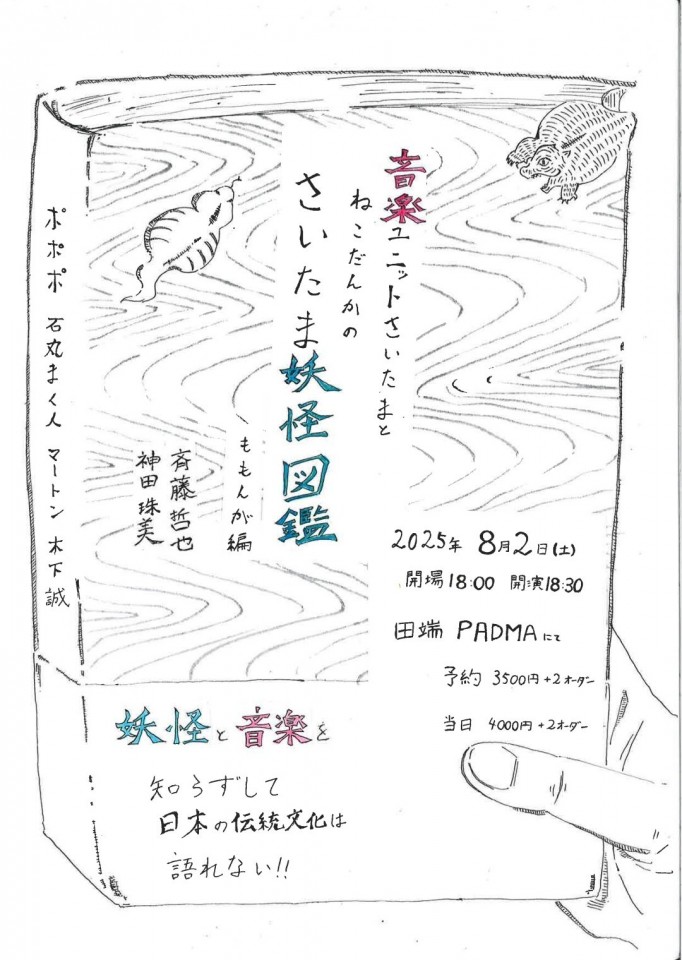 音楽ユニットさいたまと
ねこだんかの
さいたま妖怪図鑑
ももんが編
斉藤哲也
神田珠美
ポポポ 石丸まく人 マートン 木下誠
2025年 8月2日(土)
開場18:00 開演18:30
田端 PADMAにて
予約 3500円+2オーダー
当日 4000円+2オーダー
妖怪と音楽を
知らずして
日本の伝統文化は
語れない!!